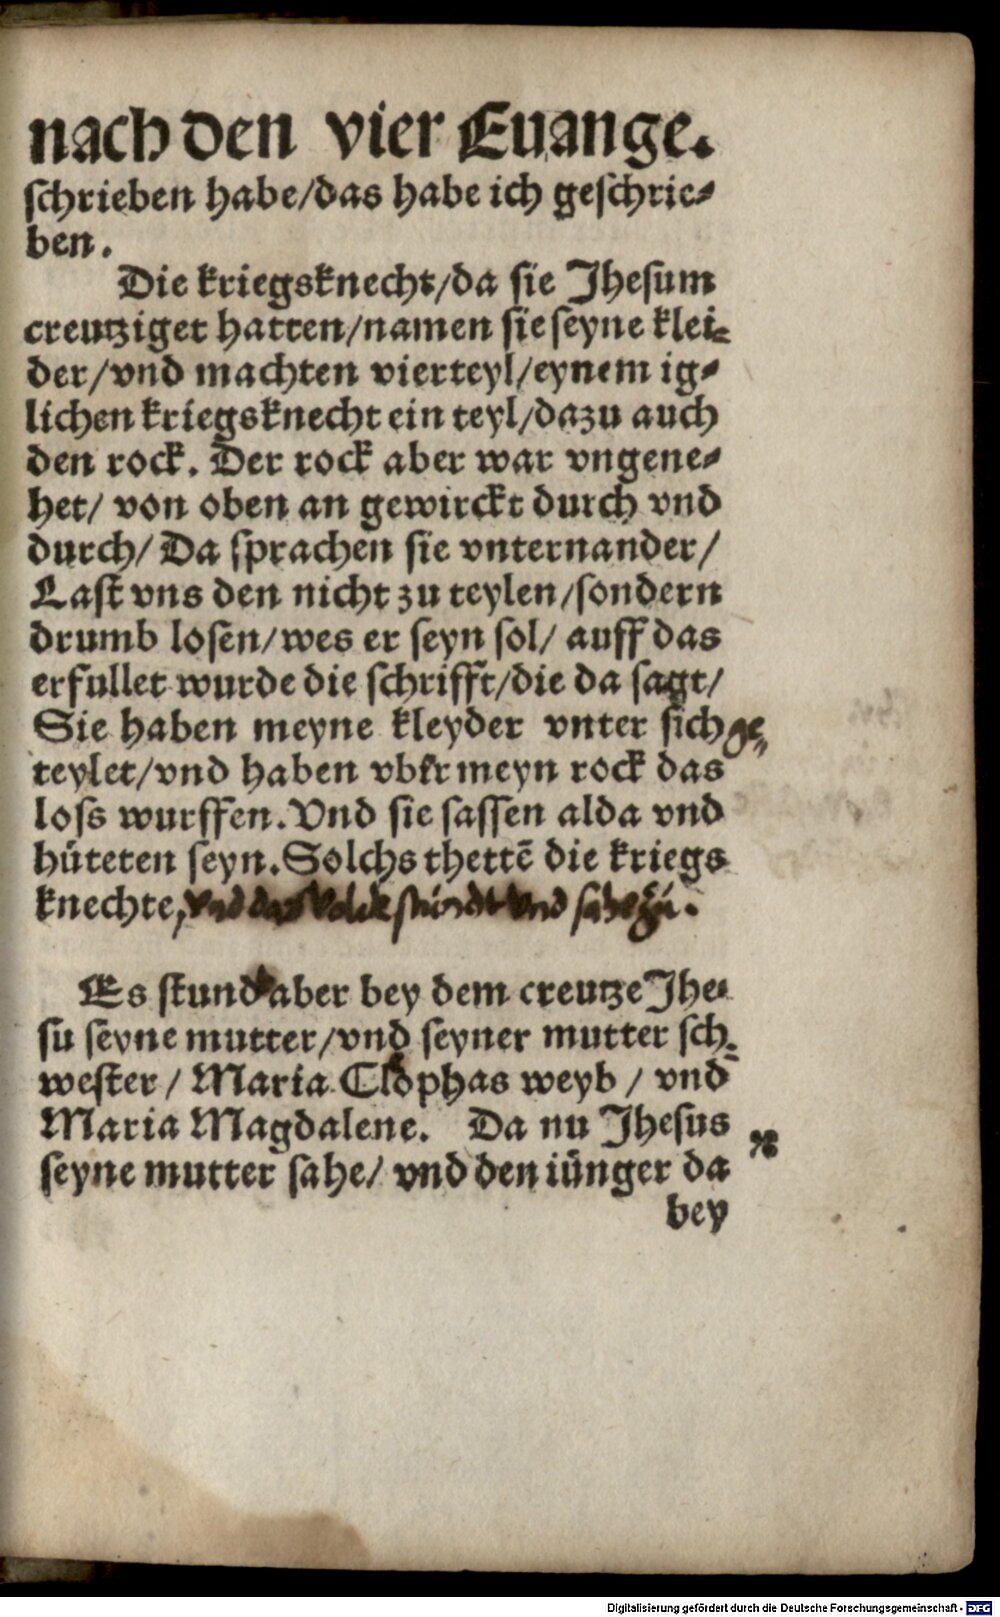 nach den vier Euange.
schrieben habe/das habe ich geschrie⸗
ben.
Die kriegsknecht/da sie Jhesum
creutziget hatten/namen sie seyne klei⸗
der/vnd machten vierteyl/eynem ig⸗
lichen kriegsknecht ein teyl/dazu auch
den rock. Der rock aber war vngene⸗
het/ von oben an gewirckt durch vnd
durch/ Da sprachen sie vnternander/
Last vns den nicht zu teylen/sondern
drumb losen/wes er seyn sol/ auff das
erfullet wurde die schrifft/die da sagt/
Sie haben meyne kleyder vnter sich ge⸗
teylet/vnd haben vbir meyn rock das
loss wurffen. Vnd sie sassen alda vnd
hüteten seyn. Solchs thettē die kriegs
knechte, vnd das volck stundt vnd sahe zu.
Es stund aber bey dem creutze Jhe⸗
su seyne mutter/vnd seyner mutter sch⸗
wester / Maria Clophas weyb / vnd
Maria Magdalene. Da nu Jhesus
seyne mutter sahe/ vnd den iünger da
bey
Digitalisierung gefördert durch die Deutsche Forschungsgemeinschaft - DFG